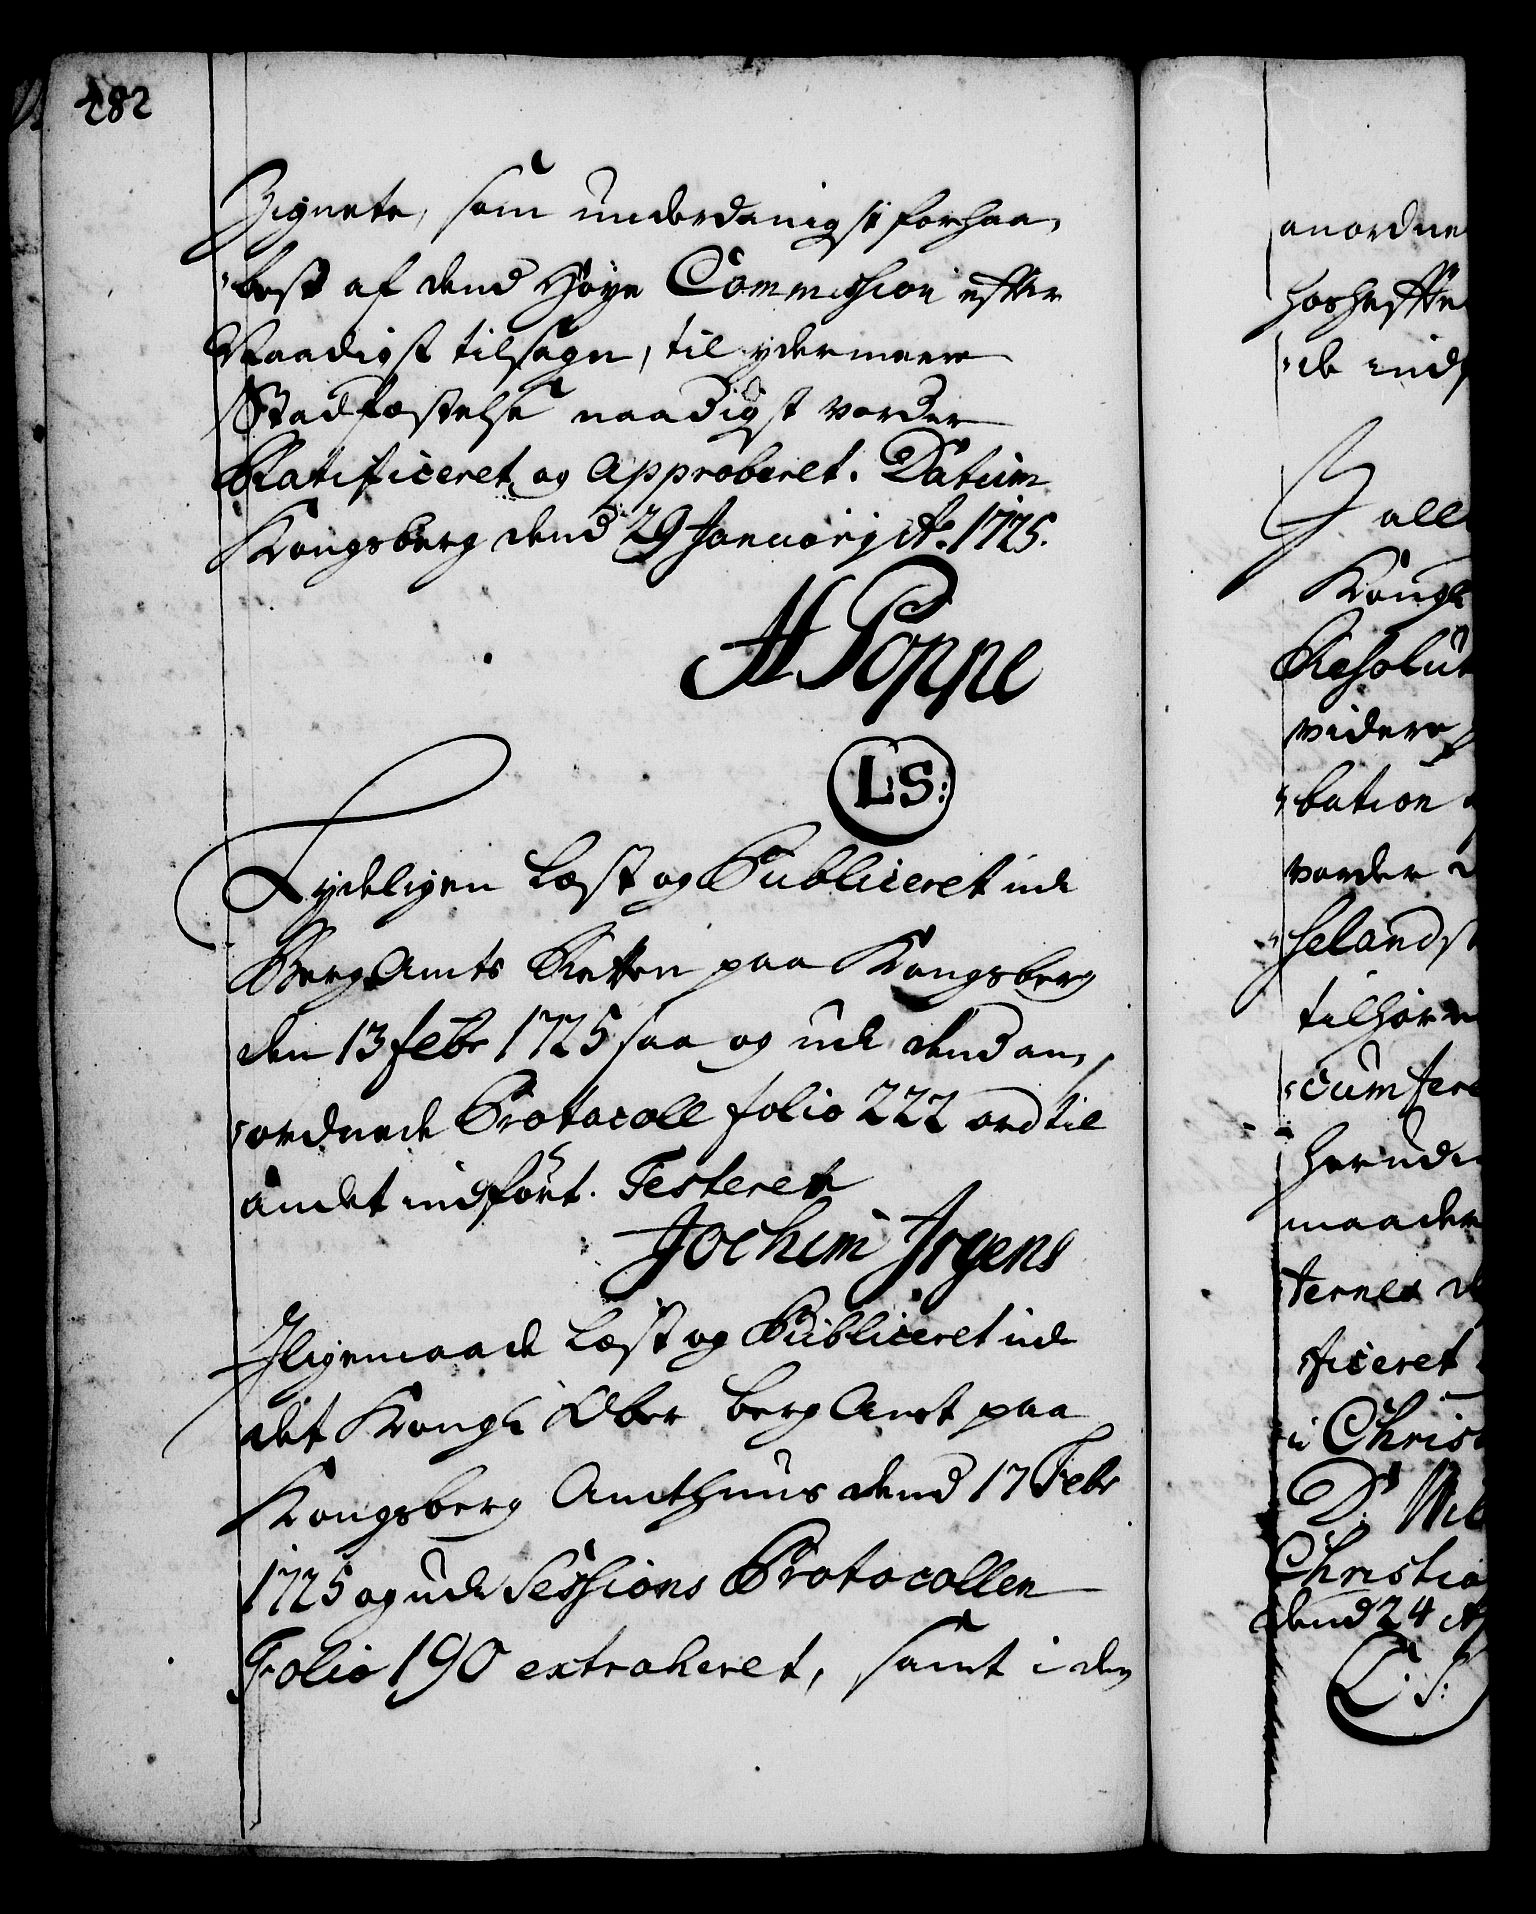 282
Zignete, som underdanigst forhaa,
,best af dend Høye Commission efter
Naadigst tilsagn, til ydermeere
Stadfæstelse naadigst vorder
Ratificeret og Approberet. Datum
Kongsberg dend 29 Januarij Ao. 1725.
H Poppe
L.S:
Tydeligen Læst og Publiceret ude
BergAmts Retten paa Kongsberg
den 13 Febr 1725 saa og ude dend an,
,ordnede Protocoll folio 222 ord til
andet indført. Testerer
Jochim Jrgens
Jligemaade Læst og Publiceret ude
det Kongl: Ober berg Amt paa
Kongsberg Amthuus dend 17 Febr
1725 og ude Sessions Protocollen
Folio 190 extraheret, samt i den
anordne
hoshefte
,de inds
alle
Kongl
Resolut
videre
,bation
vorder
,selands
tilhøre
,cumfere
herude
maader
ternes
,ficeret
i Chris
D: Wil
Christia
dend 24 A
L: S: